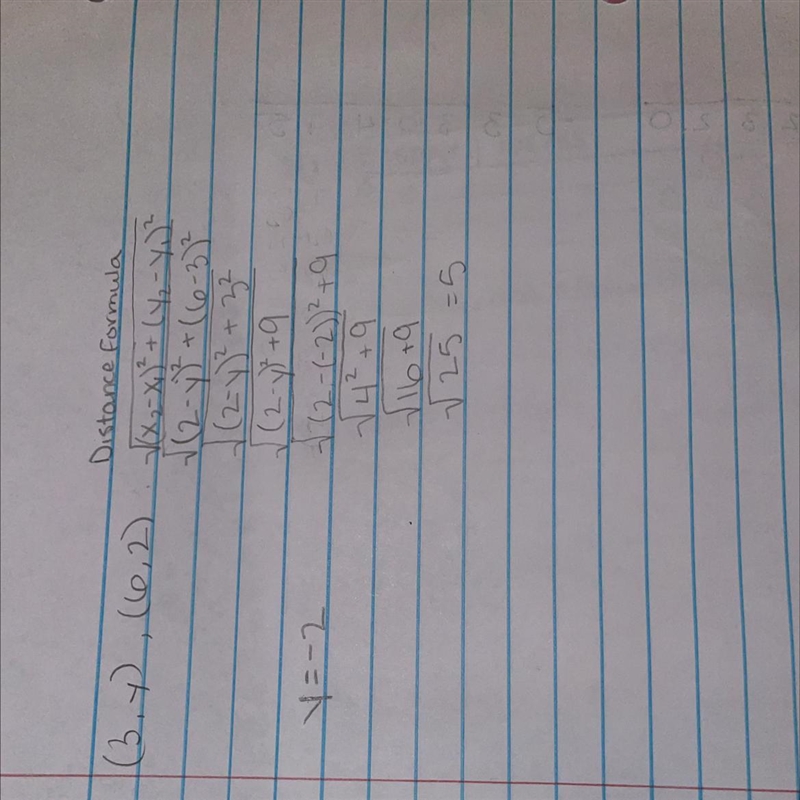 Distance Formula
(3, y), (6, 2) . √(x₂-x₁)² + (y₂-y₁)²
√(2-y)² + (6-3)²
√(2-y)² + 3²
√(2-y)² + 9
y = -2 √(2-(-2))² + 9
√4² + 9
√16 + 9
√25 = 5